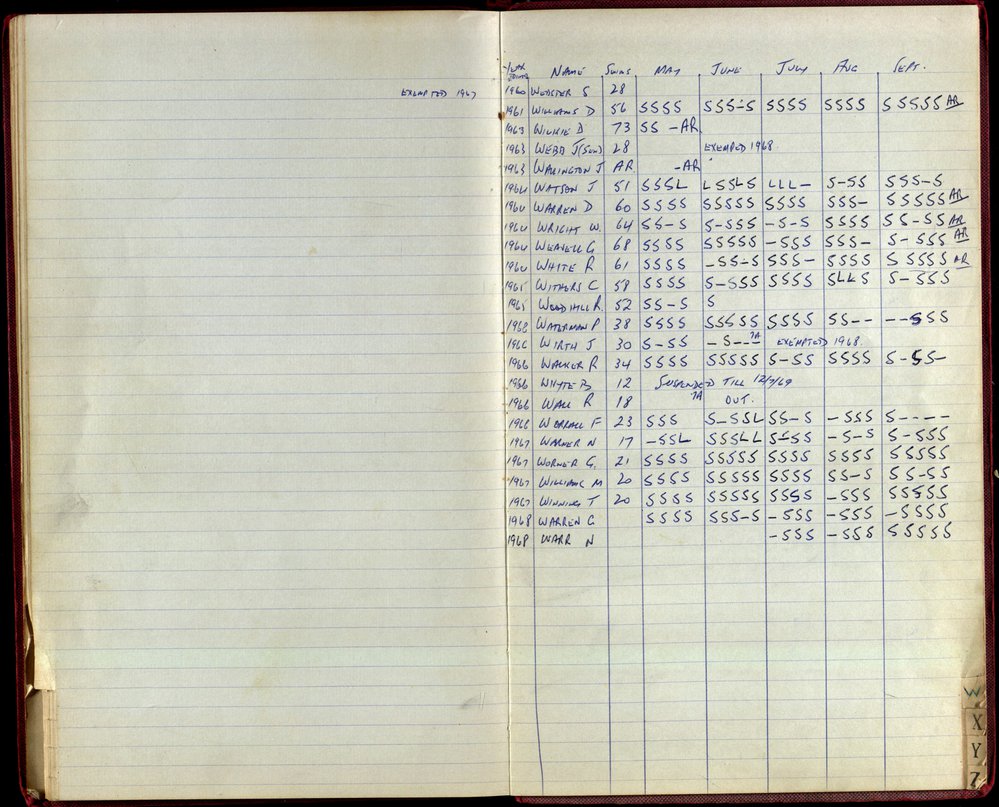 YEAR JOINED NAME SWIMS MAY JUNE JULY AUG SEPT.
EXEMPTED 1967 1960 WEBSTER S 28
1961 WILLIAMS D 56 SSSS SSS-S SSSS SSSS SSSSS AR
1963 WILKIE D 73 SS -AR
1963 WEBB J (SEN) 28 EXEMPTED 1968
1963 WALINGTON J AR -AR
1964 WATSON J 51 SSSL LSSLS LLL- S-SS SSS-S
1964 WARREN D 60 SSSS SSSSS SSSS SSS- SSSSS AR
1964 WRIGHT W. 64 SS-S S-SSS -S-S SSSS SS-SS AR
1964 WEAVELL G 68 SSSS SSSSS -SSS SSS- S-SSS AR
1964 WHITE R 61 SSSS -SS-S SSS- SSSS SSSSS AR
1965 WITHERS C 58 SSSS S-SSS SSSS SLLS S-SSS
1965 WOODHILL R. 52 SS-S S
1966 WATERMAN P 38 SSSS SSSSS SSSS SS-- --SSS
1966 WIRTH J 30 S-SS -S--- 7A EXEMPTED 1968
1966 WALKER R 34 SSSS SSSSS S-SS SSSS S-SS-
1966 WHYTE B 12 SUSPENDED TILL 12/7/69
1966 WALL R 18 7A OUT.
1966 WORRALL F 23 SSS S-SSL SS-S -SSS S----
1967 WARNER N 17 -SSL SSSLL S-SS -S-S S-SSS
1967 WORNER G. 21 SSSS SSSSS SSSS SSSS SSSSS
1967 WILLIAMS M 20 SSSS SSSSS SSSS SS-S SS-SS
1967 WINNING T 20 SSSS SSSSS SSSS -SSS SSSSS
1968 WARREN G SSSS SSS-S -SSS -SSS -SSSS
1968 WARR N -SSS -SSS SSSSS
W
X
Y
Z